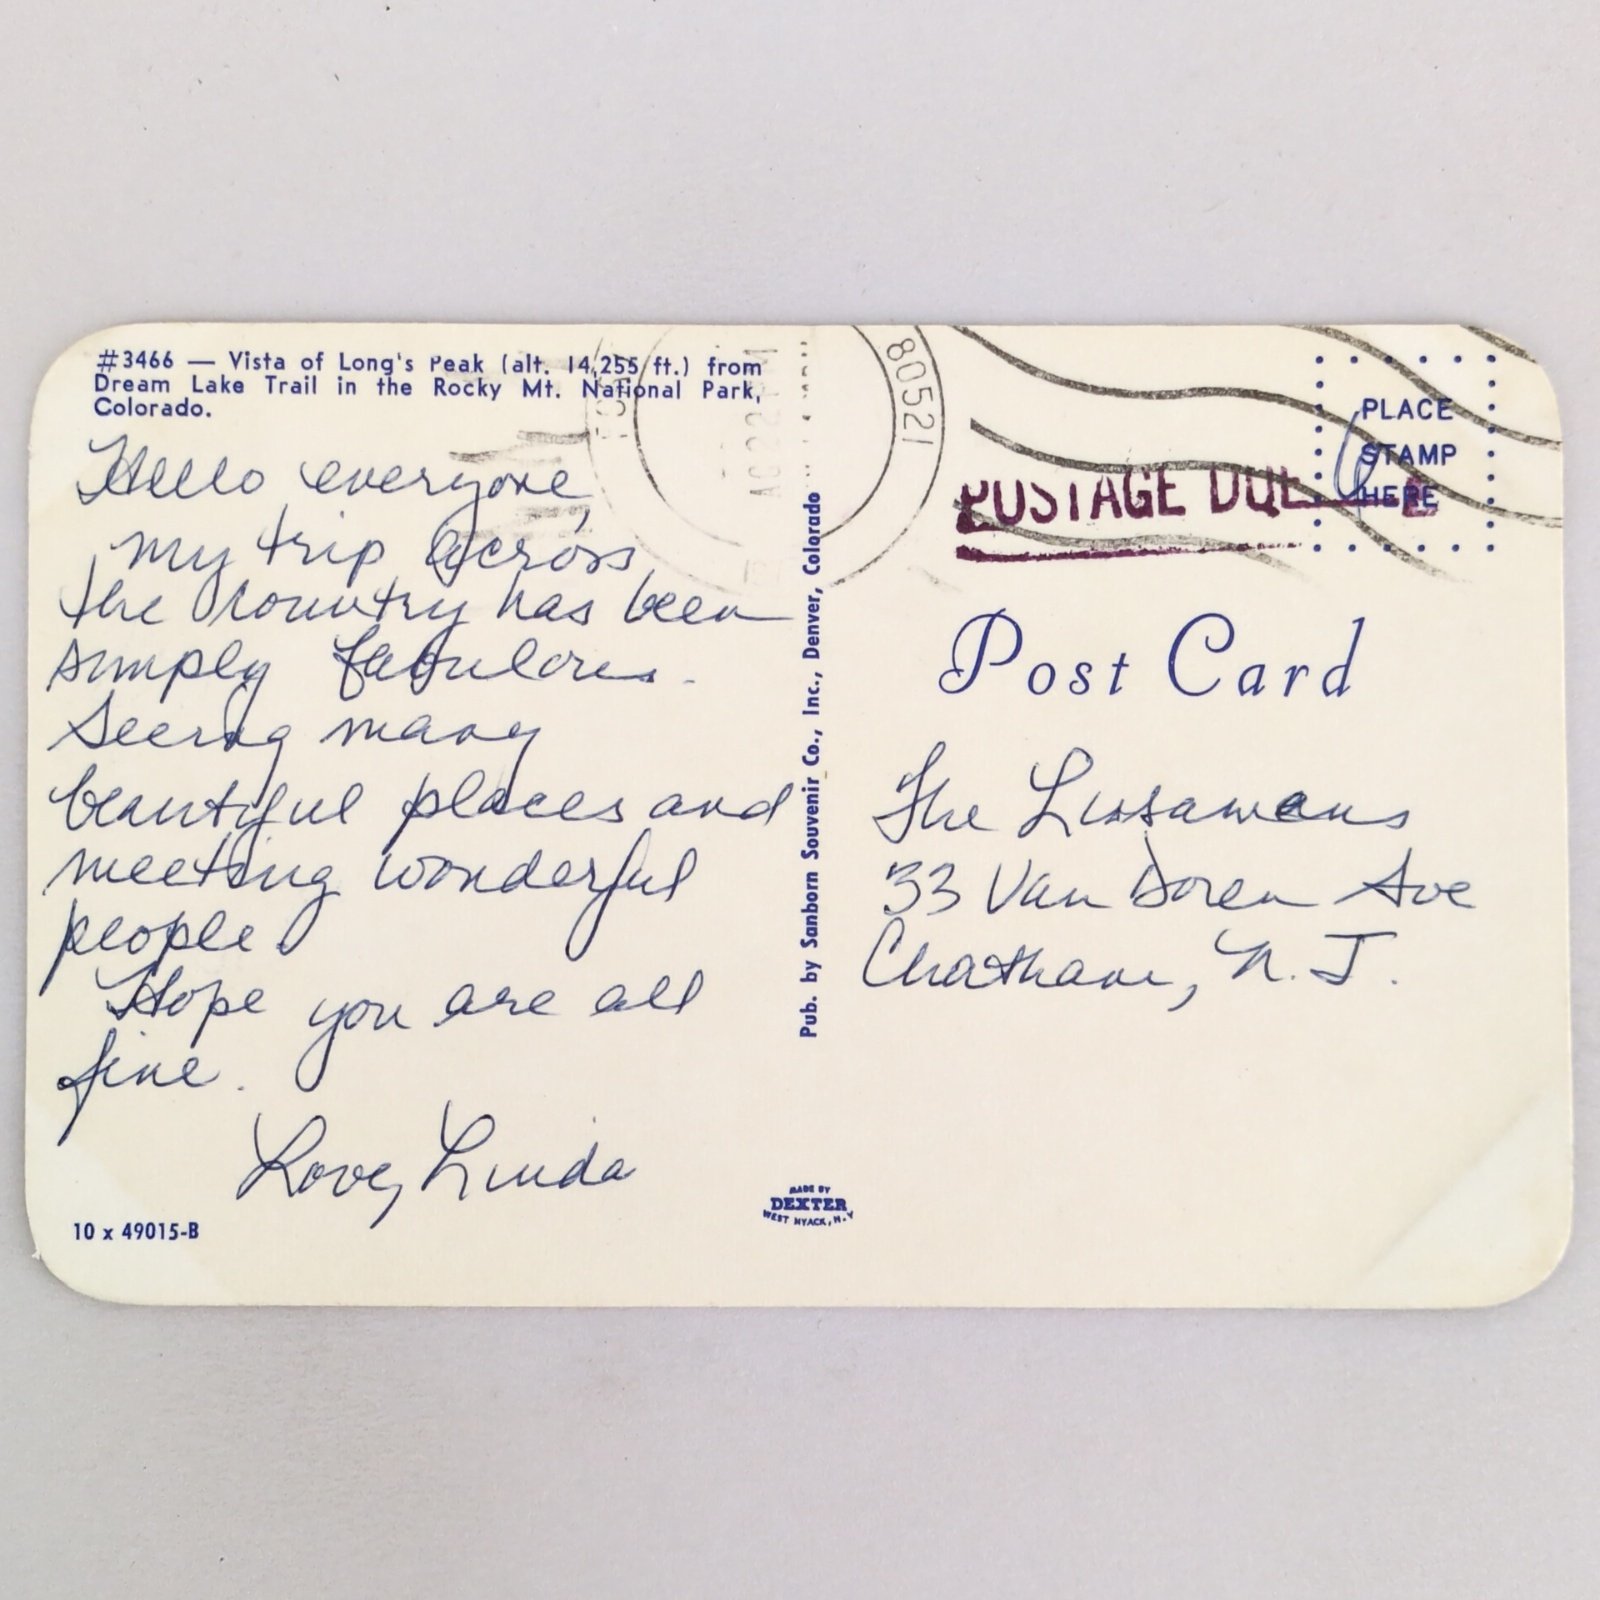 #3466 — Vista of Long's Peak (alt. 14,255 ft.) from
Dream Lake Trail in the Rocky Mt. National Park,
Colorado.
Hello everyone,
my trip across
the country has been
simply fabulous.
Seeing many
beautiful places and
meeting wonderful
people.
Hope you are all
fine.
Love, Linda
10 x 49015-B
Pub. by Sanborn Souvenir Co., Inc., Denver, Colorado
MADE BY
DEXTER
WEST NYACK, N.Y.
80521
POSTAGE DUE 6
PLACE
STAMP
HERE
Post Card
The
33 Van Doren Ave
Chatham, N.J.